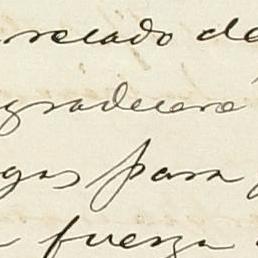 recado de
gradecere
gas para
fuerza